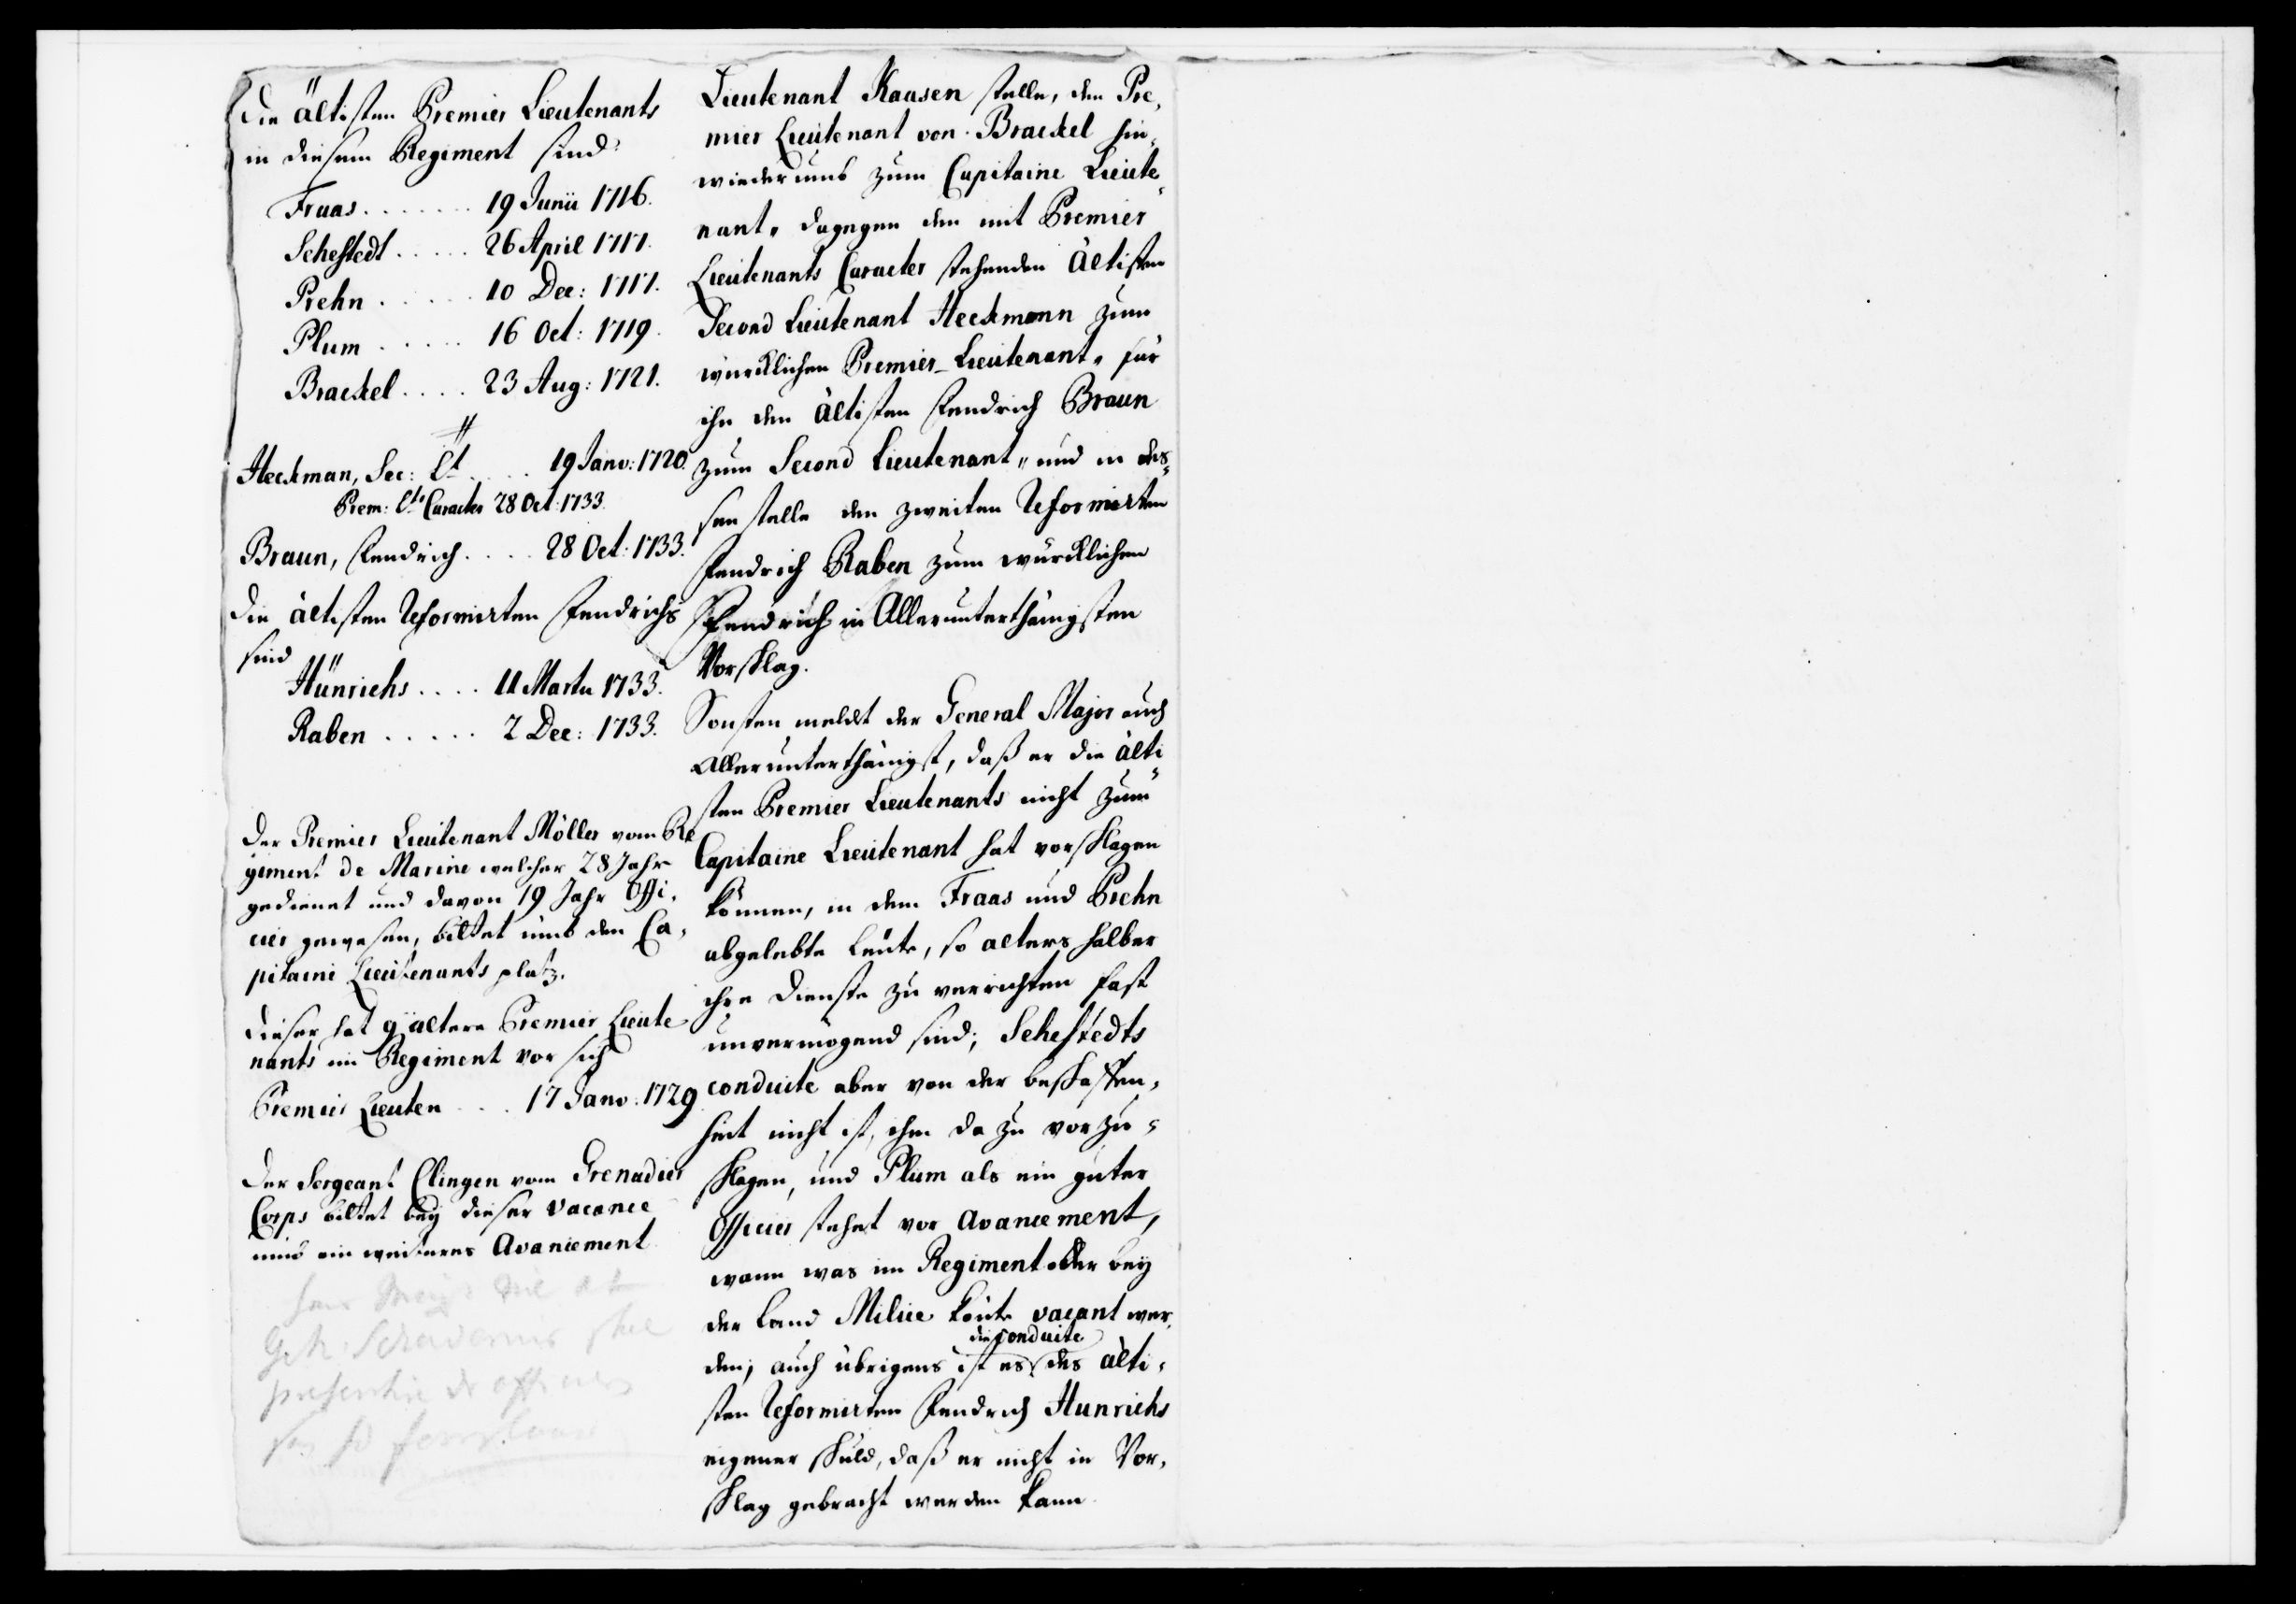 Die ältisten Premier Lieutenants
in diesem Regiment sind:
Fraas ....... 19 Junii 1716.
Schestedt ..... 26 April 1717.
Prehn ..... 10 Dec: 1717.
Plum ..... 16 Oct: 1719.
Brackel .... 23 Aug: 1721.
Heckman, Sec: Lt .... 19 Janv: 1720.
Prem: Lts Caracter 28 Oct: 1733.
Braun, Fendrich .... 28 Oct: 1733.
Die ältisten Reformirten Fendrichs
sind
Hünrichs .... 11 Martii 1733.
Raben ..... 2 Dec: 1733.
Der Premier Lieutenant Möller vom Re
giment de Marine welcher 28 Jahr
gedienet und davon 19 Jahr Offi-
cier gewesen, bittet umb den Ca-
pitaine Lieutenants platz.
Dieser hat 9 ältere Premier Lieute
nants im Regiment vor sich
Premier Lieuten ... 17 Janv: 1729.
Der Sergeant Clingen vom Grenadier
Corps bittet bey dieser vacance
umb ein weiteres Avancement
Lieutenant Kaasen stelle, den Pre-
mier Lieutenant von Brackel hin-
wiederumb zum Capitaine Lieute-
nant, dagegen den mit Premier
Lieutenants Caracter stehenden ältisten
Second Lieutenant Heckmann zum
würcklichen Premier-Lieutenant, für
ihn den ältisten Fendrich Braun
zum Second Lieutenant, und in des-
sen stelle den zweiten Reformirten
Fendrich Raben zum würcklichen
Fendrich in Allerunterthänigsten
Vorschlag.
Sonsten meldet der General Major auch
Allerunterthänigst, daß er die älti-
sten Premier Lieutenants nicht zum
Capitaine Lieutenant hat vorschlagen
können, in dem Fraas und Prehn
abgelebte Leute, so alters halber
ihre Dienste zu verrichten fast
unvermögend sind; Schestedts
conduite aber von der beschaffen-
heit nicht ist, ihn da zu vorzu-
schlagen, und Plum als ein guter
Officier stehet vor Avancement,
wann was im Regiment oder bey
der Land Milice könte vacant wer-
den; auch übrigens ist es die conduite des älti-
sten Reformirten Fendrich Hunrichs
eigener schuld, daß er nicht in Vor-
schlag gebracht werden kann